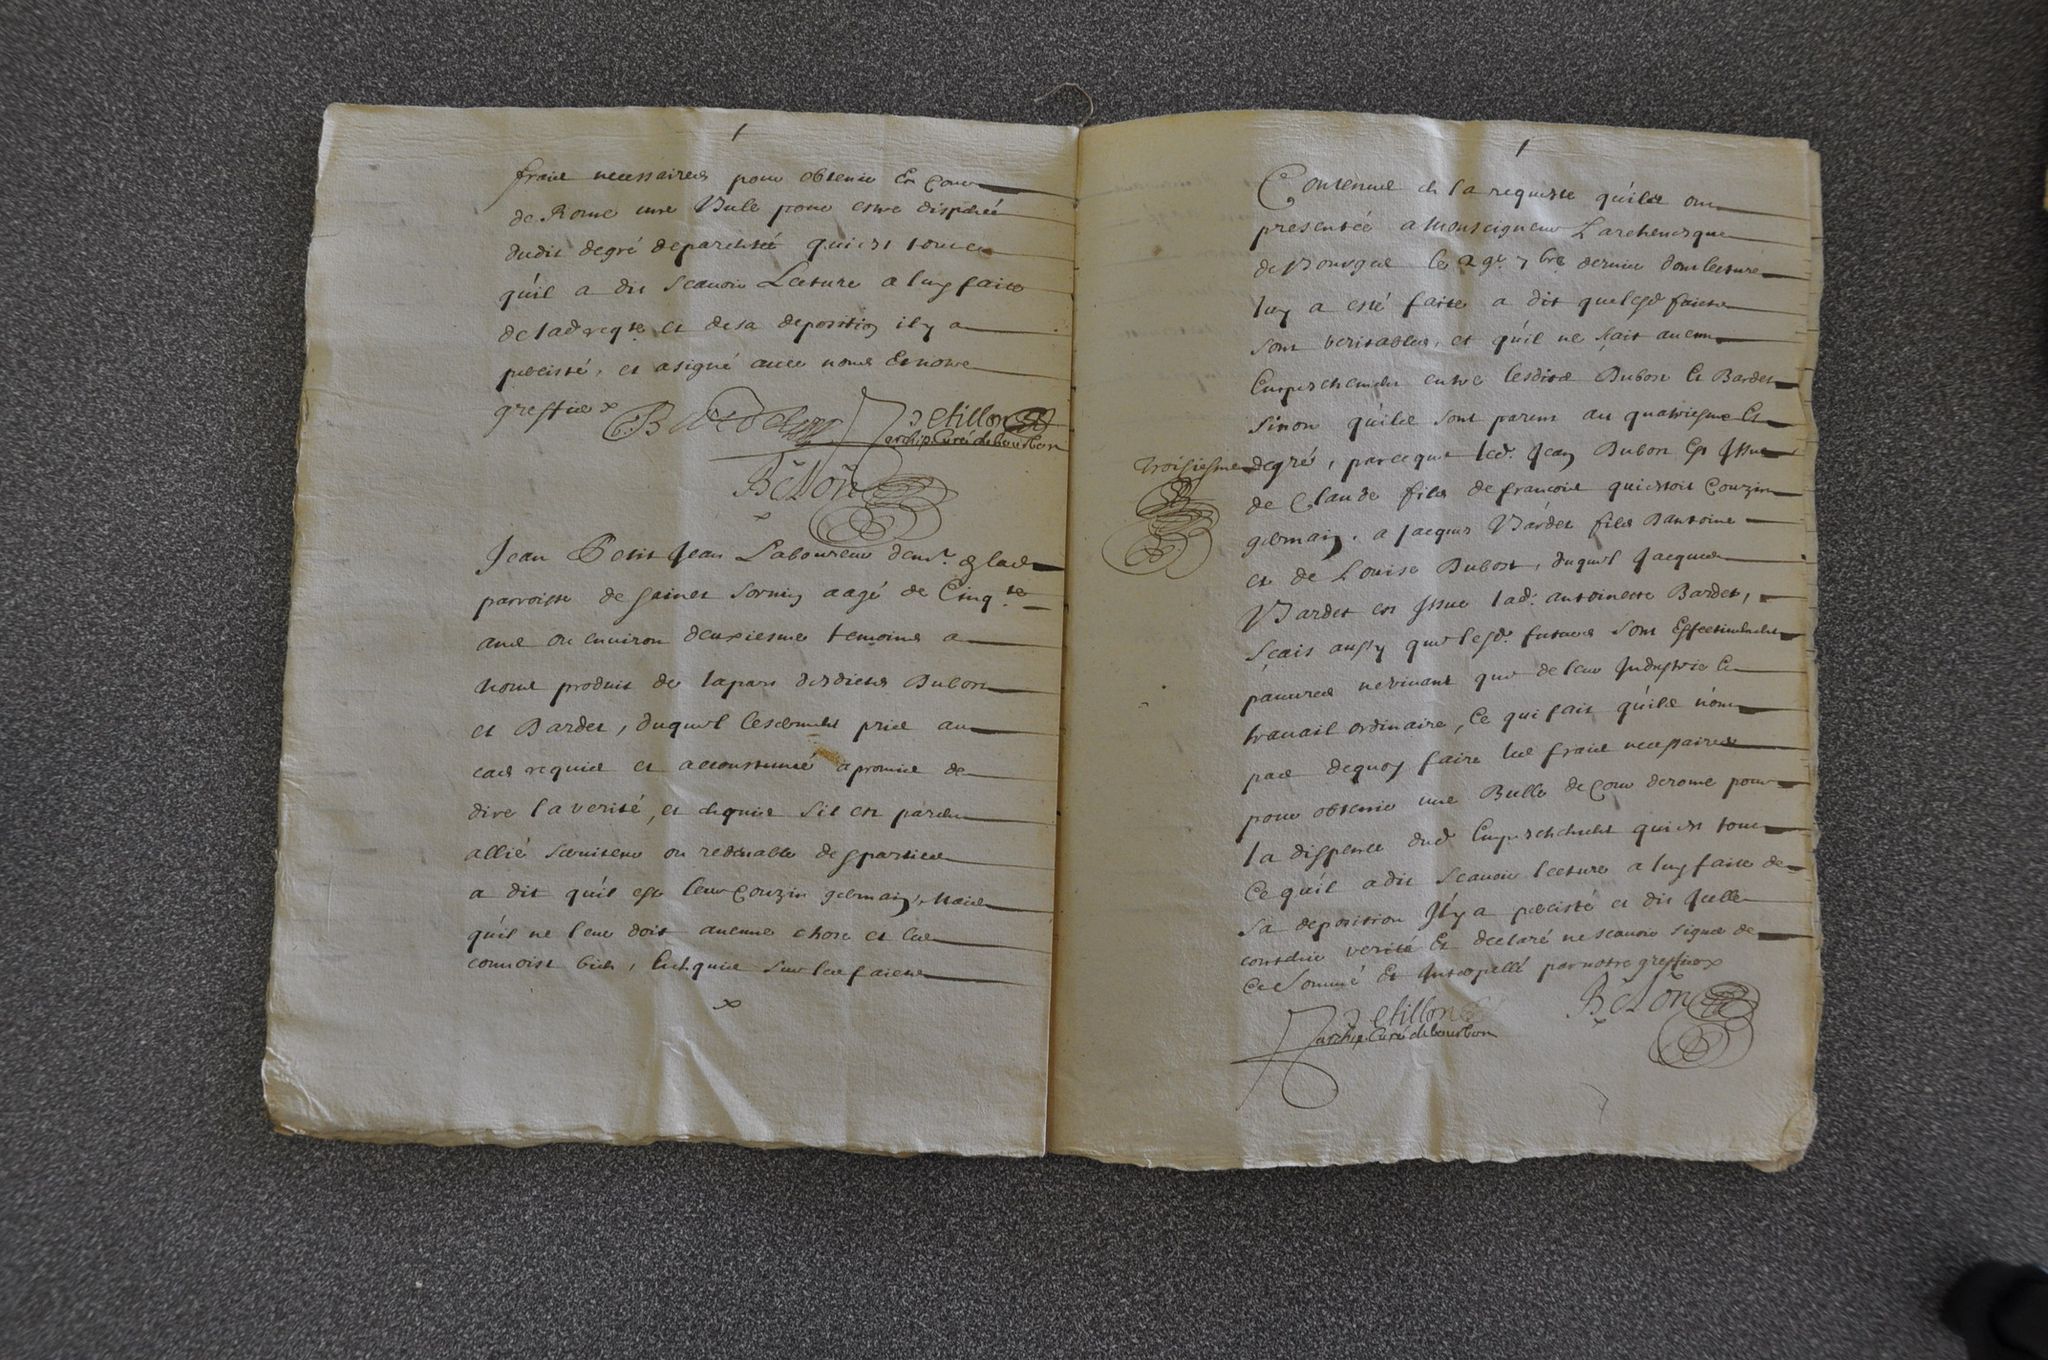 fraiz necessaires pour obtenir En Cour
de Rome une Bule pour estre dispensé
dudit degré de parentée qui est tout ce
qu'il a dit scavoir Lecture a luy faite
de lad reqte et de sa deposition il y a
percisté, et a signé avec nous Et nostre
greffier
Petillon
archip. Curé de bourbon
Belon
Jean Petit Jean Laboureur demt. En lad
parroisse de Sainct Sornin aagé de Cinqte
ans ou environ deuxiesme temoins a
nous produit de la part desdicts Dubost
et Bardet, duquel le serment pris au
cas requis et accoustumé a promis de
dire la verité, et enquis s'il est parent
allié serviteur ou redevable des parties
a dit qu'il est leur Couzin germain, Mais
qu'il ne leur doit aucune chose et les
connoist bien, Enquis sur les faicts
Contenus en la requeste qu'ils ont
presentée a Monseigneur L'archevesque
de Bourges le 29e 7bre dernier dont lecture
luy a esté faite a dit que lesd faicts
sont veritables, et qu'il ne sçait aucun
Empeschement entre lesdits Dubost Et Bardet
sinon qu'ils sont parens au quatriesme Et
troisiesme degré, parce que led. Jean Dubost Est Issu
de Claude fils de francois qui estoit Couzin
germain a Jacques Bardet fils D'antoine
et de Louise Dubost, duquel Jacques
Bardet est Issue lad. antoinette Bardet,
sçait aussy que lesd. futurs sont Effectivement
pauvres ne vivant que de leur Industrie Et
travail ordinaire, Ce qui fait qu'ils n'ont
pas dequoy faire les fraiz necessaires
pour obtenir une Bulle de Cour de rome pour
la dispence dud Empeschement qui est tout
Ce qu'il a dit scavoir lecture a luy faite de
sa deposition Il y a percisté et dit Icelle
contenir verité Et declaré ne scavoir signer de
Ce sommé Et Interpellé par nostre greffier
Petillon
archip. Curé de bourbon
Belon